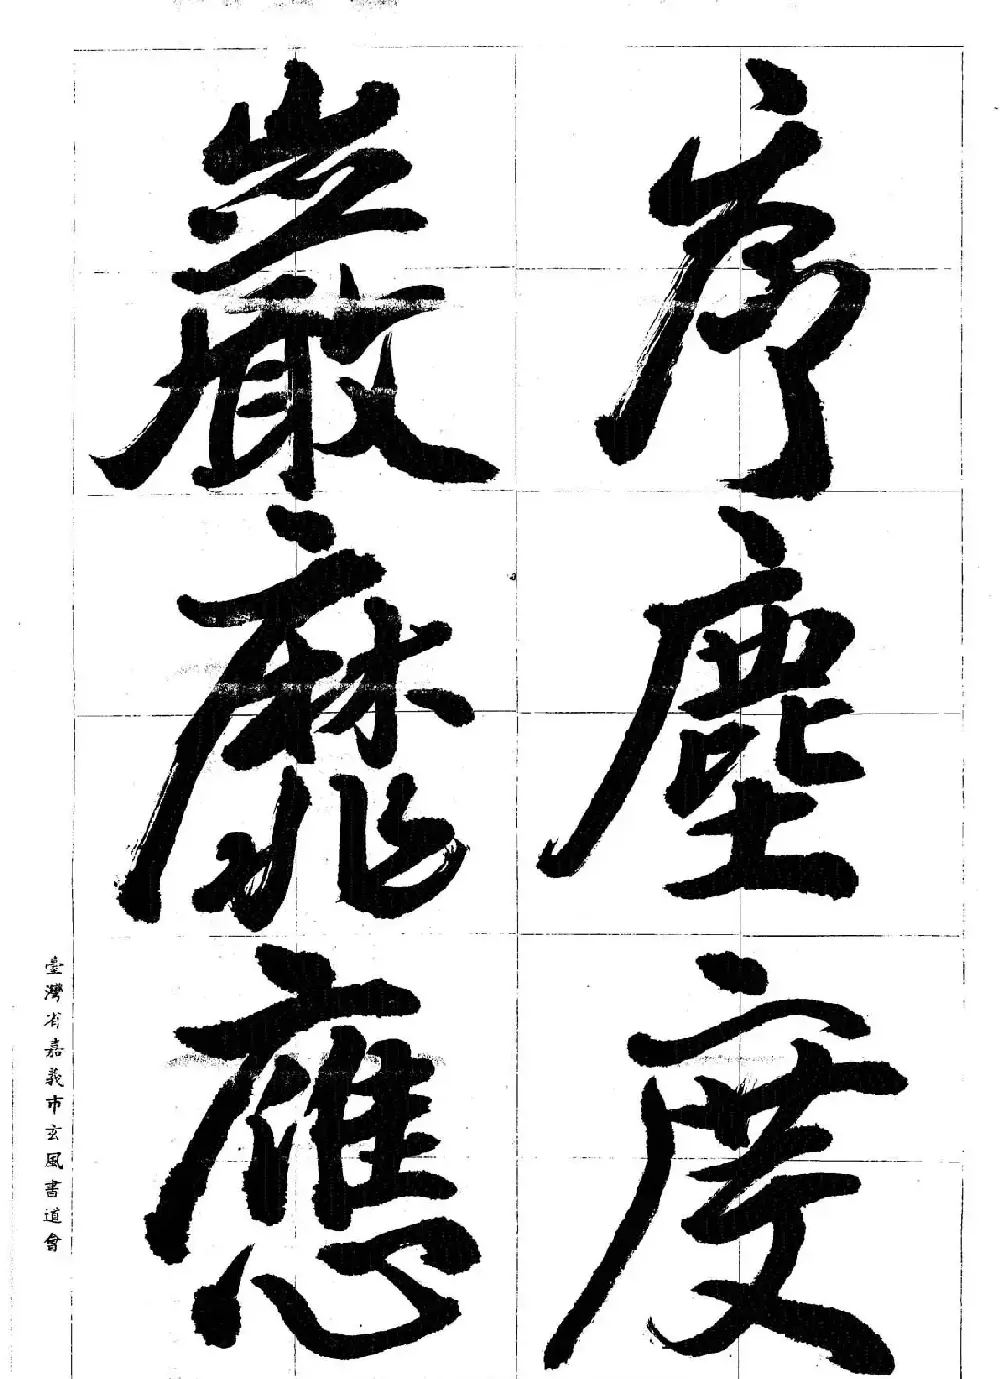 序塵度
嚴靡應
臺灣省嘉義市玄風書道會